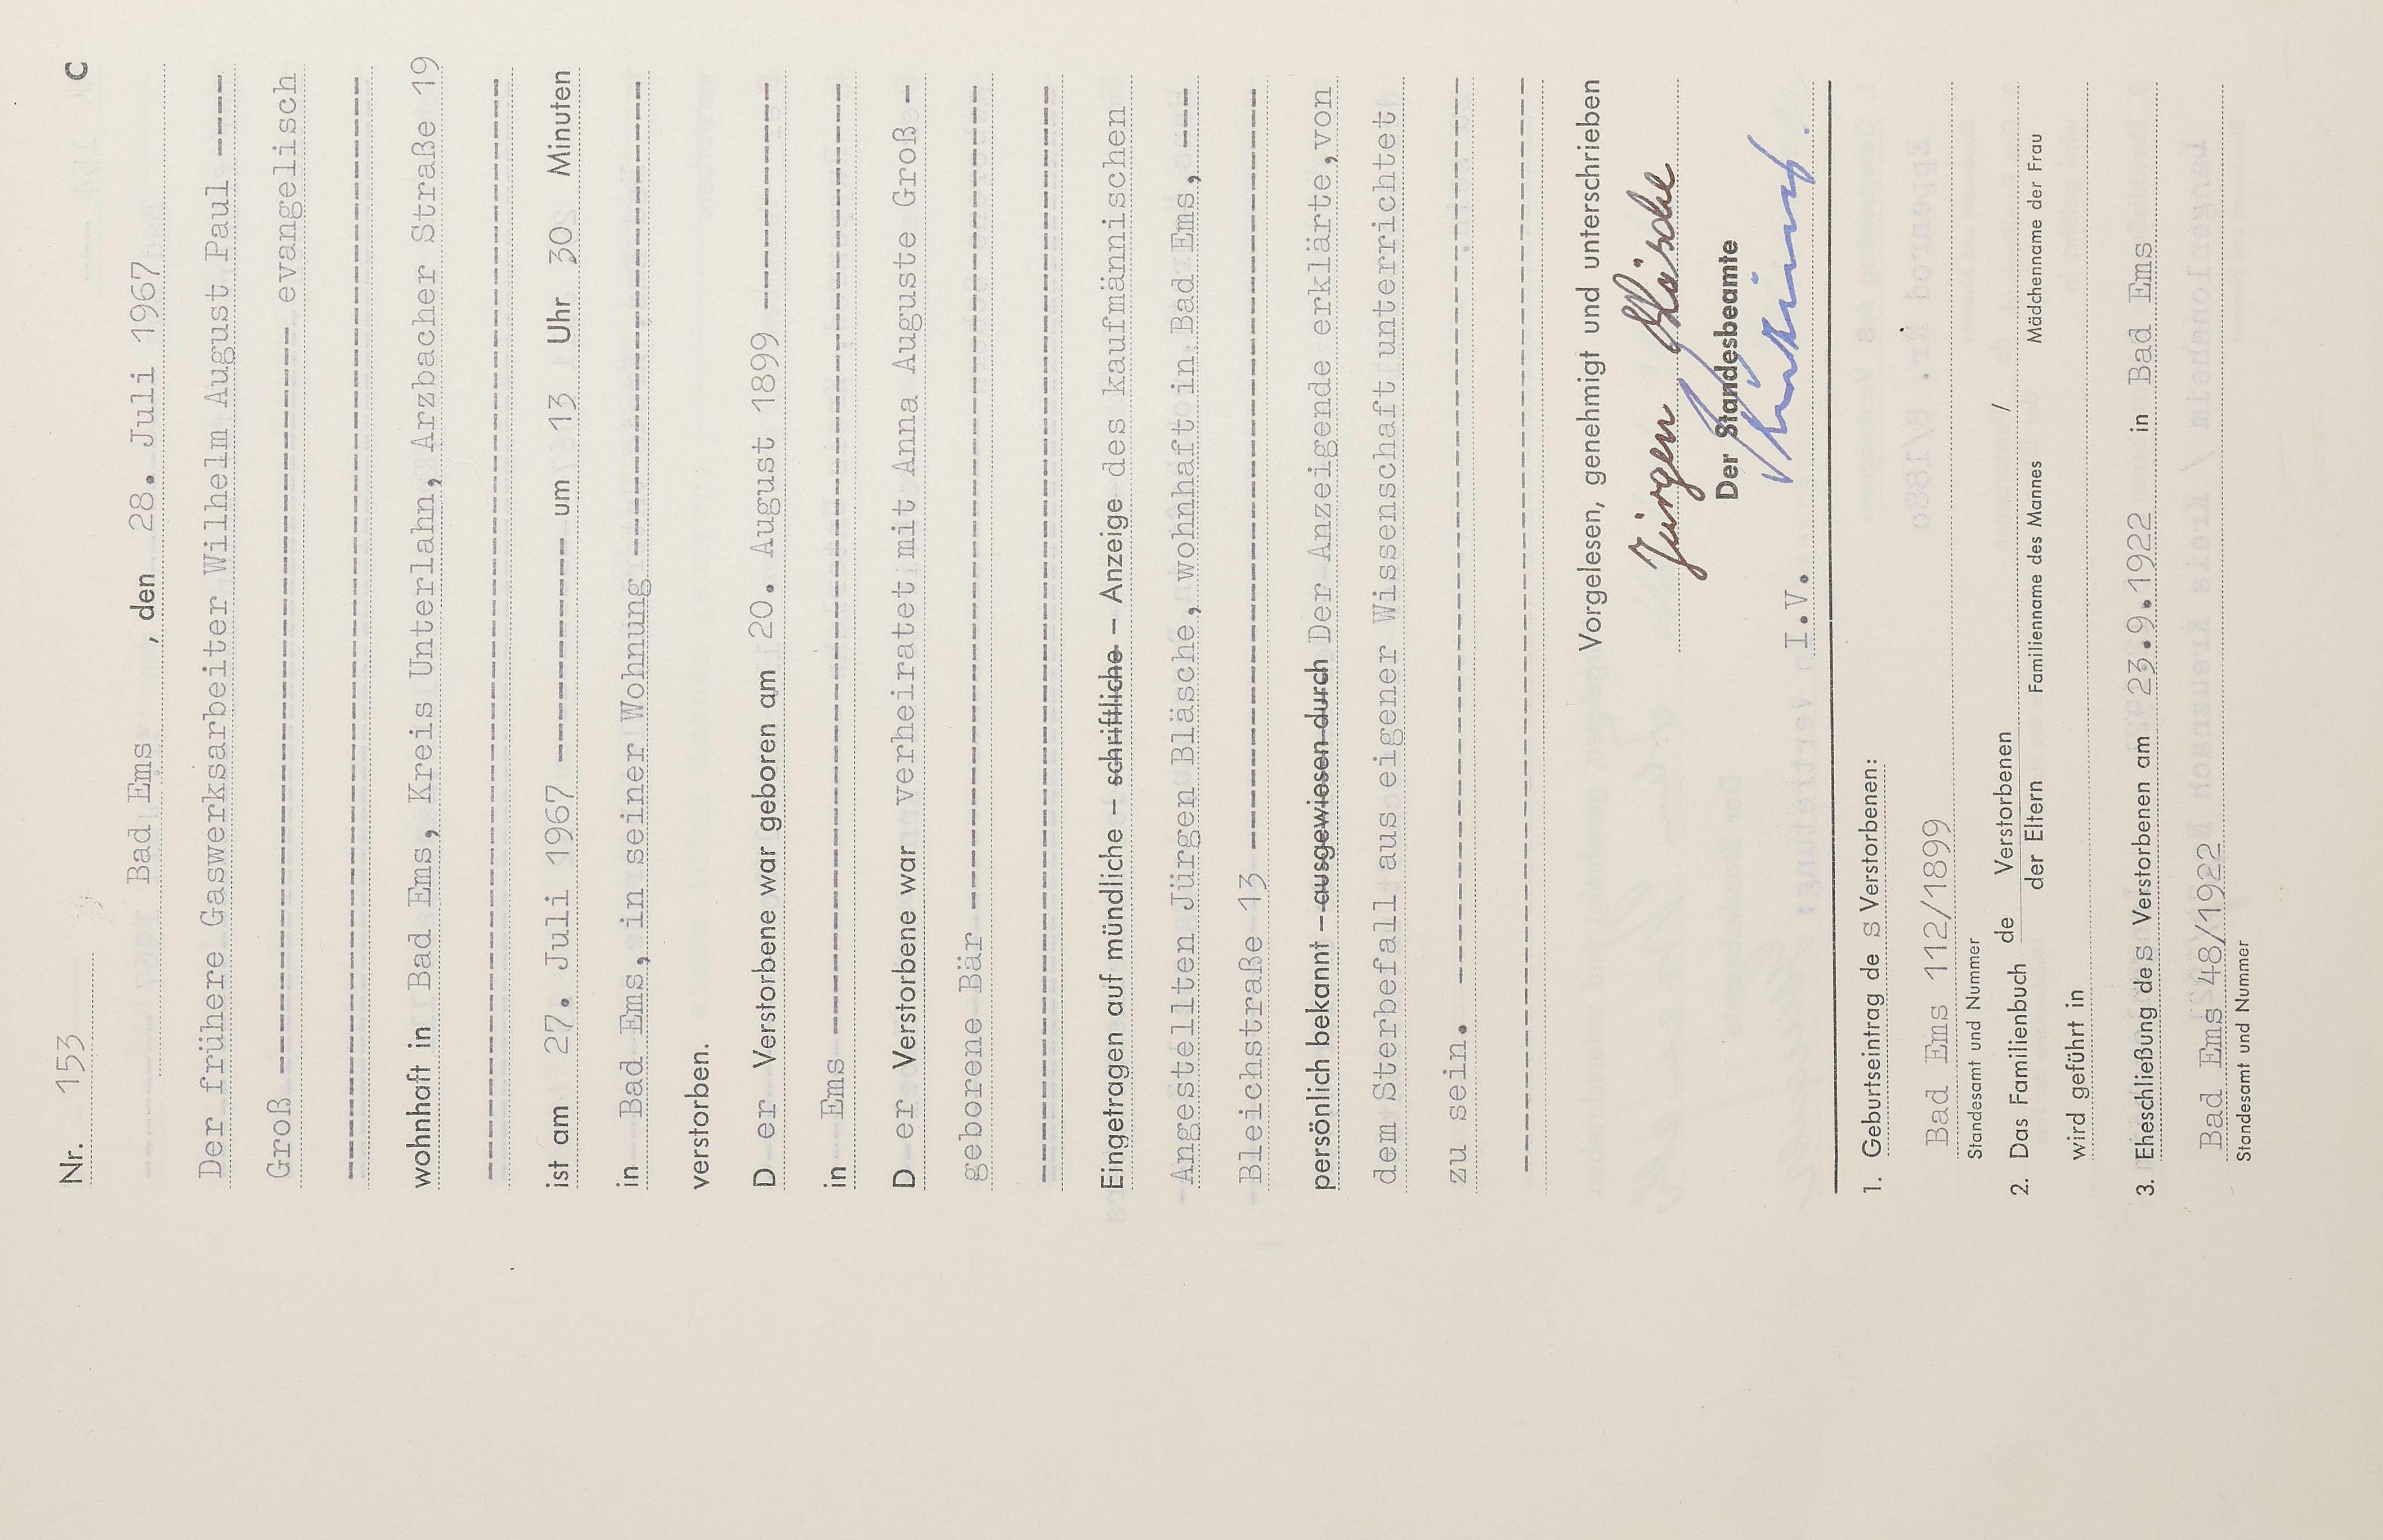 Nr. 153 C
Bad Ems, den 28. Juli 1967
Der frühere Gaswerksarbeiter Wilhelm August Paul -----
Groß ---------- evangelisch
----------
wohnhaft in Bad Ems, Kreis Unterlahn, Arzbacher Straße 19
----------
ist am 27. Juli 1967 ---------- um 13 Uhr 30 Minuten
in Bad Ems, in seiner Wohnung ----------
verstorben.
D er Verstorbene war geboren am 20. August 1899 ----------
in Ems ----------
D er Verstorbene war verheiratet mit Anna Auguste Groß -
geborene Bär ----------
----------
Eingetragen auf mündliche – schriftliche – Anzeige des kaufmännischen
Angestellten Jürgen Bläsche, wohnhaft in Bad Ems, ---
Bleichstraße 13 ----------
persönlich bekannt – ausgewiesen durch Der Anzeigende erklärte, von
dem Sterbefall aus eigener Wissenschaft unterrichtet
zu sein. ----------
----------
Vorgelesen, genehmigt und unterschrieben
Jürgen Bläsche
Der Standesbeamte
I.V.
1. Geburtseintrag de s Verstorbenen:
Bad Ems 112/1899
Standesamt und Nummer
2. Das Familienbuch de Verstorbenen /
der Eltern Familienname des Mannes Mädchenname der Frau
wird geführt in
3. Eheschließung des Verstorbenen am 23.9.1922 in Bad Ems
Bad Ems 48/1922
Standesamt und Nummer